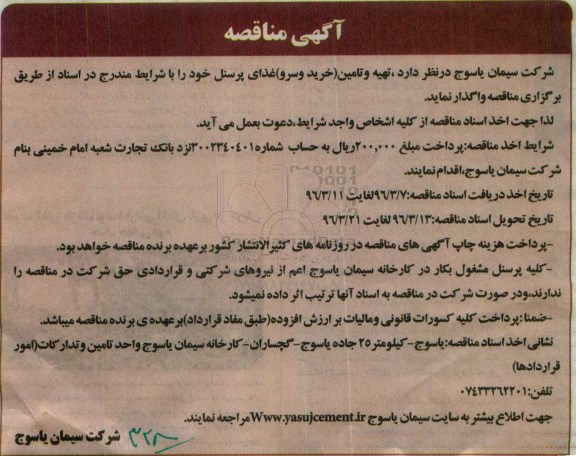 آگهی مناقصه
شرکت سیمان یاسوج درنظر دارد ،تهیه وتامین(خرید وسرو)غذای پرسنل خود را با شرایط مندرج در اسناد از طریق
برگزاری مناقصه واگذار نماید.
لذا جهت اخذ اسناد مناقصه از کلیه اشخاص واجد شرایط،دعوت بعمل می آید.
شرایط اخذ مناقصه:پرداخت مبلغ ۲۰۰,۰۰۰ریال به حساب شماره۳۰۰۲۳۴۰۴۰۱نزد بانک تجارت شعبه امام خمینی بنام
شرکت سیمان یاسوج،اقدام نمایند.
تاریخ اخذ دریافت اسناد مناقصه:۹۶/۳/۷لغایت ۹۶/۳/۱۱
تاریخ تحویل اسناد مناقصه:۹۶/۳/۱۳ لغایت ۹۶/۳/۲۱
-پرداخت هزینه چاپ آگهی های مناقصه در روزنامه های کثیرالانتشار کشور برعهده برنده مناقصه خواهد بود.
-کلیه پرسنل مشغول بکار در کارخانه سیمان یاسوج اعم از نیروهای شرکتی و قراردادی حق شرکت در مناقصه را
ندارند،ودر صورت شرکت در مناقصه به اسناد آنها ترتیب اثر داده نمیشود.
-ضمنا:پرداخت کلیه کسورات قانونی ومالیات بر ارزش افزوده(طبق مفاد قرارداد)برعهده ی برنده مناقصه میباشد.
نشانی اخذ اسناد مناقصه:یاسوج-کیلومتر۲۵ جاده یاسوج-گچساران-کارخانه سیمان یاسوج واحد تامین وتدارکات(امور
قراردادها)
تلفن:۰۷۴۳۳۲۶۲۲۰۱
جهت اطلاع بیشتر به سایت سیمان یاسوج Www.yasujcement.irمراجعه نمایند.
شرکت سیمان یاسوج